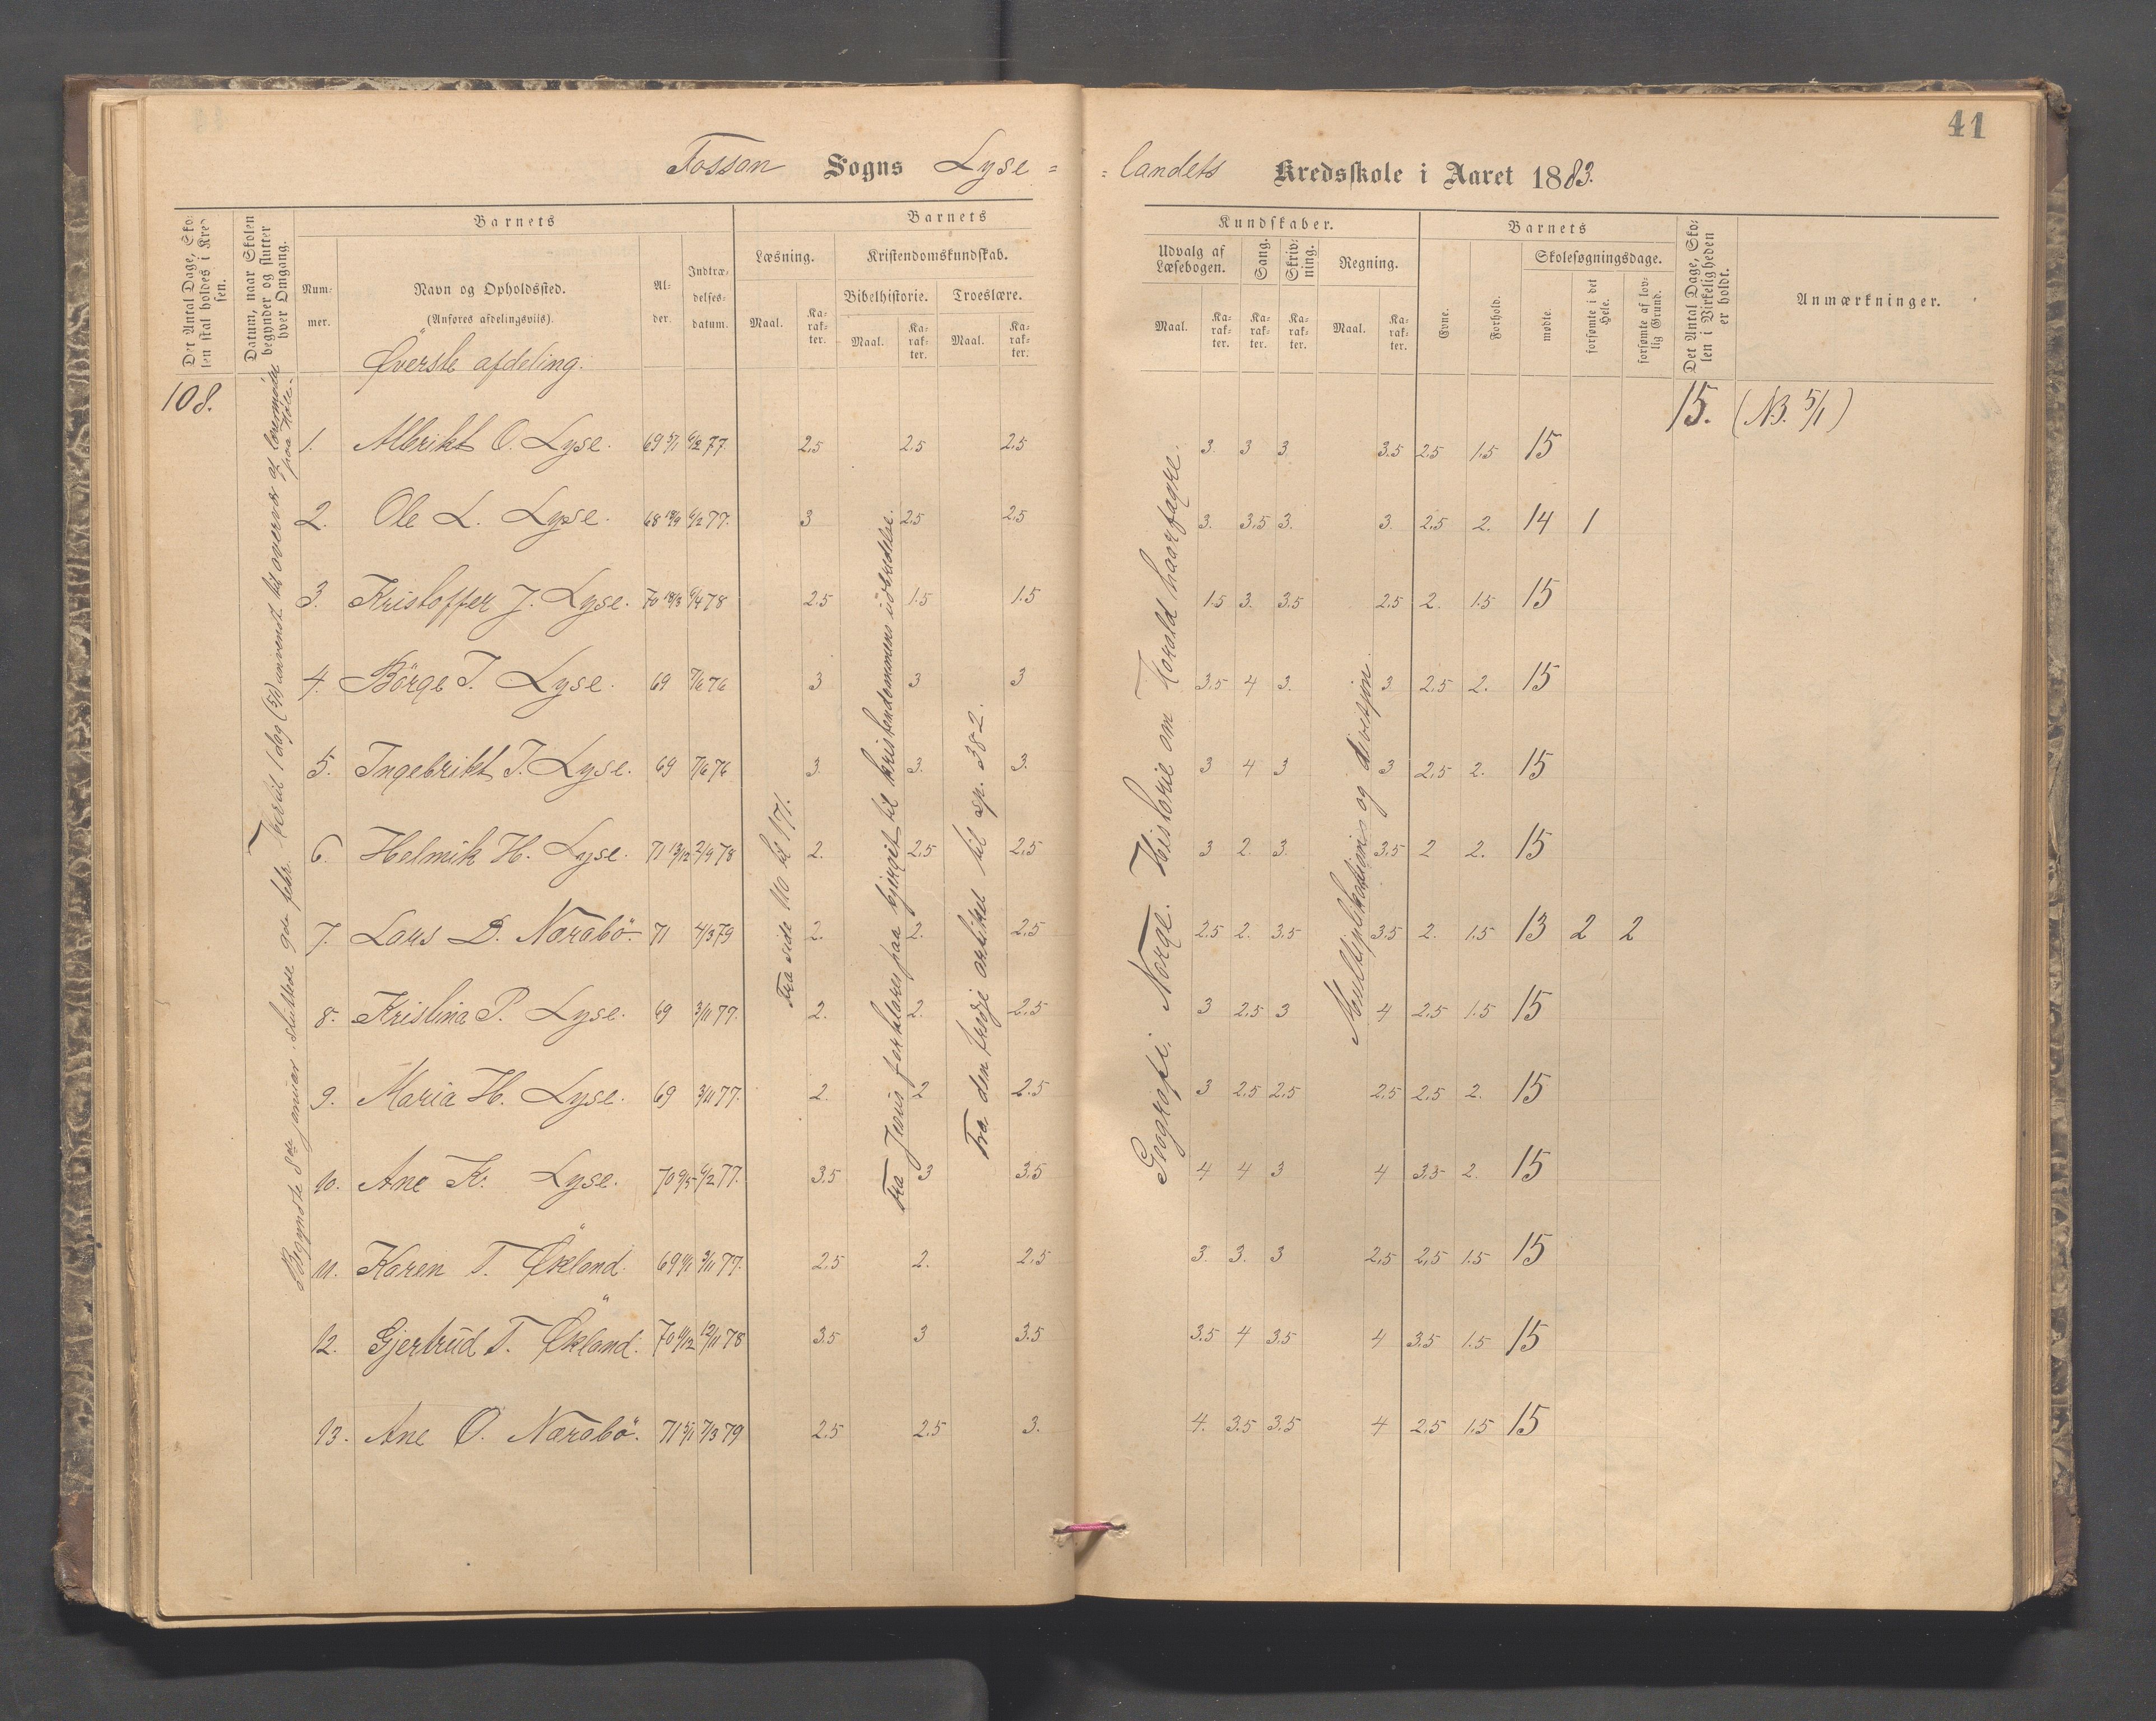 41
Fossan Sogns Lyse = = landets Kredsskole i Aaret 1883.
Det Antal Dage, Skolen skal holdes i Kredsen.
Datum, naar Skolen begynder og slutter hver Omgang.
Barnets
Nummer.
Navn og Opholdssted.
(Anføres afdelingsviis).
Alder.
Indtrædelsesdatum.
Barnets
Læsning.
Maal.
Karakter.
Kristendomskundskab.
Bibelhistorie.
Maal.
Karakter.
Troeslære.
Maal.
Karakter.
Kundskaber.
Udvalg af Læsebogen.
Maal.
Karakter.
Sang.
Karakter.
Skrivning.
Karakter.
Regning.
Maal.
Karakter.
Barnets
Evne.
Forhold.
Skolesøgningsdage.
mødte.
forsømte i det Hele.
forsømte af lovlig Grund.
Det Antal Dage, Skolen i Virkeligheden er holdt.
Anmærkninger.
Øverste afdeling.
108.
15. (NB. 5/1)
1. Albrikt O. Lyse. 69 5/1 6/2 77. 2.5 2.5 2.5 3. 3 3. 3.5 2.5 1.5 15
2. Ole L. Lyse. 68 18/9 6/2 77. 3 2.5 2.5 3. 3.5 3. 3. 2.5 2. 14 1
3. Kristoffer J. Lyse. 70 18/3 6/4 78 2.5 1.5 1.5 1.5 3. 3.5 2.5 2. 1.5 15
4. Börge T. Lyse. 69 7/6 76 3 3 3 3.5 4 3. 3 2.5 2. 15
5. Ingebrikt T. Lyse. 69 7/6 76 3. 3. 3. 3 4 3 3 2.5 2. 15
6. Helmik H. Lyse. 71 13/12 2/9 78 2. 2.5 2.5 3 2. 3. 3.5 2 2. 15
7. Lars D. Narabö. 71 4/3 79 2. 2. 2.5 2.5 2. 3.5 3.5 2. 1.5 13 2 2
8. Kristina P. Lyse. 69 3/11 77. 2. 2. 2.5 3 2.5 3 4 2.5 1.5 15
9. Maria H. Lyse. 69 3/11 77. 2. 2 2.5 3 2.5 2.5 2.5 2.5 2. 15
10. Ane K. Lyse. 70 9/5 6/2 77. 3.5 3 3.5 4 4 3 4 3.5 2. 15
11. Karen T. Økland. 69 9/11 3/11 77. 2.5 2. 2.5 3. 3. 3 2.5 2.5 1.5 15
12. Gjertrud T. Økland. 70 11/12 12/11 78 3.5 3 3.5 3.5 4 3.5 4 3.5 1.5 15
13. Ane O. Narabö. 71 5/1 7/3 79 2.5 2.5 3. 4. 3.5 3.5 4 2.5 1.5 15
Begyndte 8de januar. sluttede 9de febr. hertil 1 dag (5/1) anvendt til overvær af lærermødet paa Höle.
Fra side 110 til 171.
Fra Jesus forklares paa bjerget til kristendommens udbredelse.
Fra den tredje artikel til sp. 382.
Geografi: Norge. Historie om Harald haarfagre.
Multiplikation og divisjon.